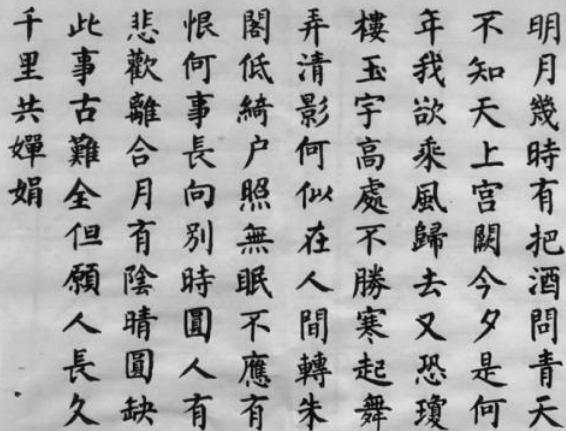 明月幾時有把酒問青天
不知天上宫闕今夕是何
年我欲乘風歸去又恐瓊
樓玉宇高處不勝寒起舞
弄清影何似在人間轉朱
閣低綺户照無眠不應有
恨何事長向别時圓人有
悲歡離合月有陰晴圓缺
此事古難全但願人長久
千里共嬋娟